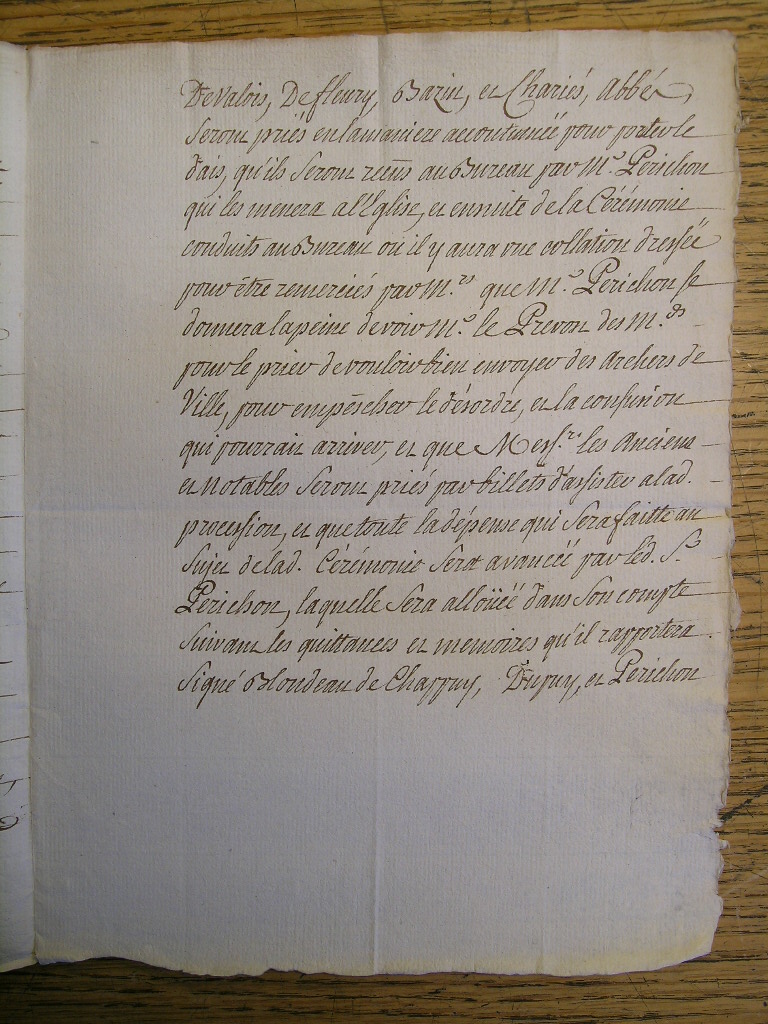 De Valois, De fleury, Bazin, et Chariés, Abbés,
seront priés en la maniere accoutumée pour porter le
dais, qu'ils seront reçus au Bureau par Mr. Perichon
qui les menera a l'Eglise, et ensuite de la Cérémonie
conduits au Bureau ou il y aura une collation dressée
pour être remerciés par M.rs que M.r Perichon se
donnera la peine de voir M.r le Prevon des M.ds
pour le prier de vouloir bien envoyer des archers de
Ville, pour empêscher le désordre, et la confusion
qui pourrait arriver, et que Mess.rs les Anciens
et Notables seront priés par billets d'assister a lad.
procession, et que toute la dépense qui sera faitte au
sujet de lad. Cérémonie sera avancéé par led. Sr.
Perichon, laquelle sera alloüéé dans son compte
suivant les quittances et memoires qu'il rapportera.
signé Blondeau de Chappuy, Dupuy, et Perichon